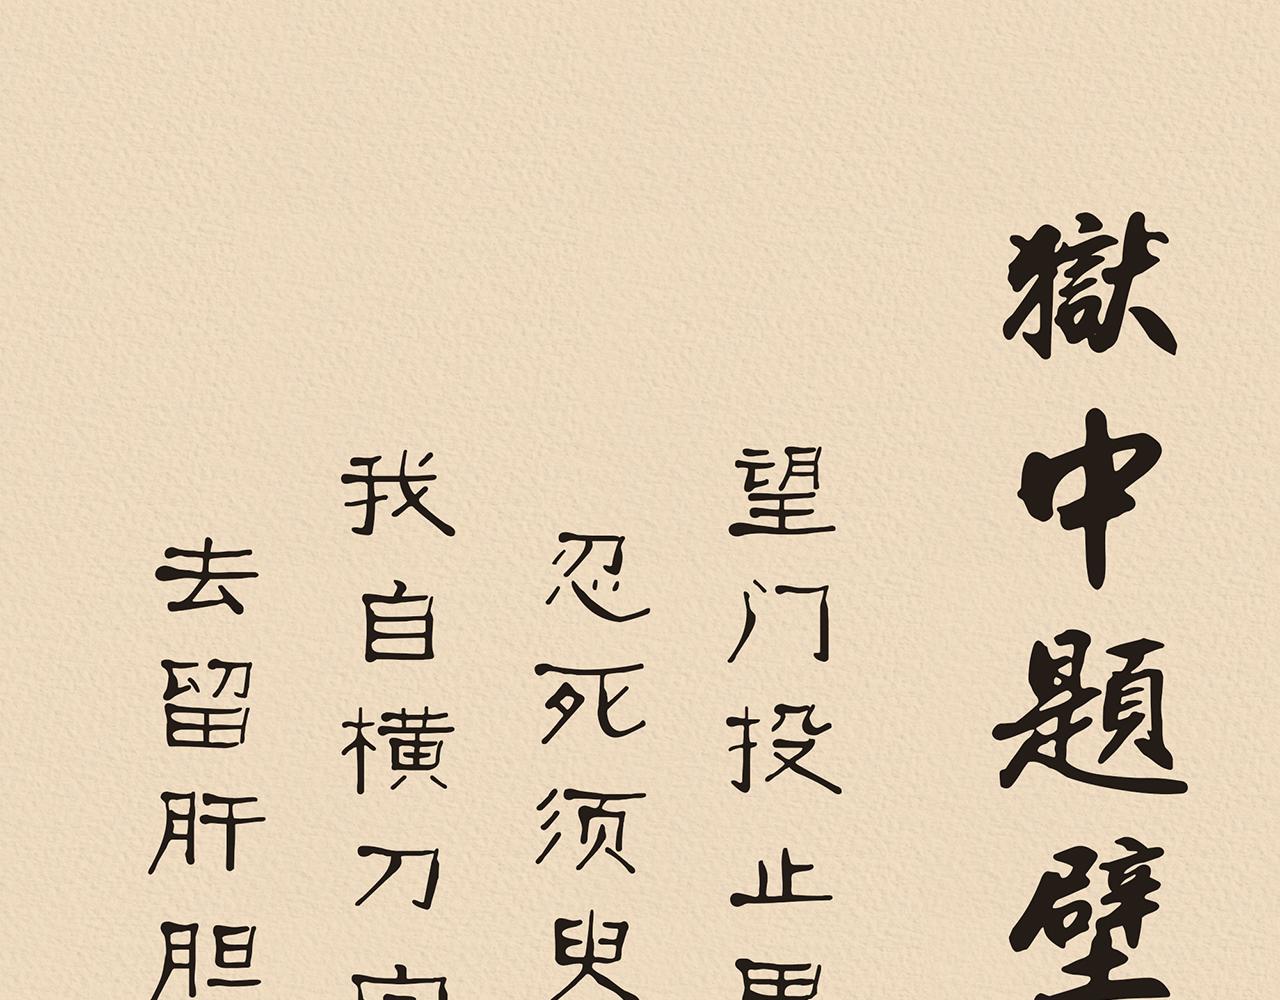 獄中題壁
望门投止
忍死须臾
我自横刀
去留肝胆